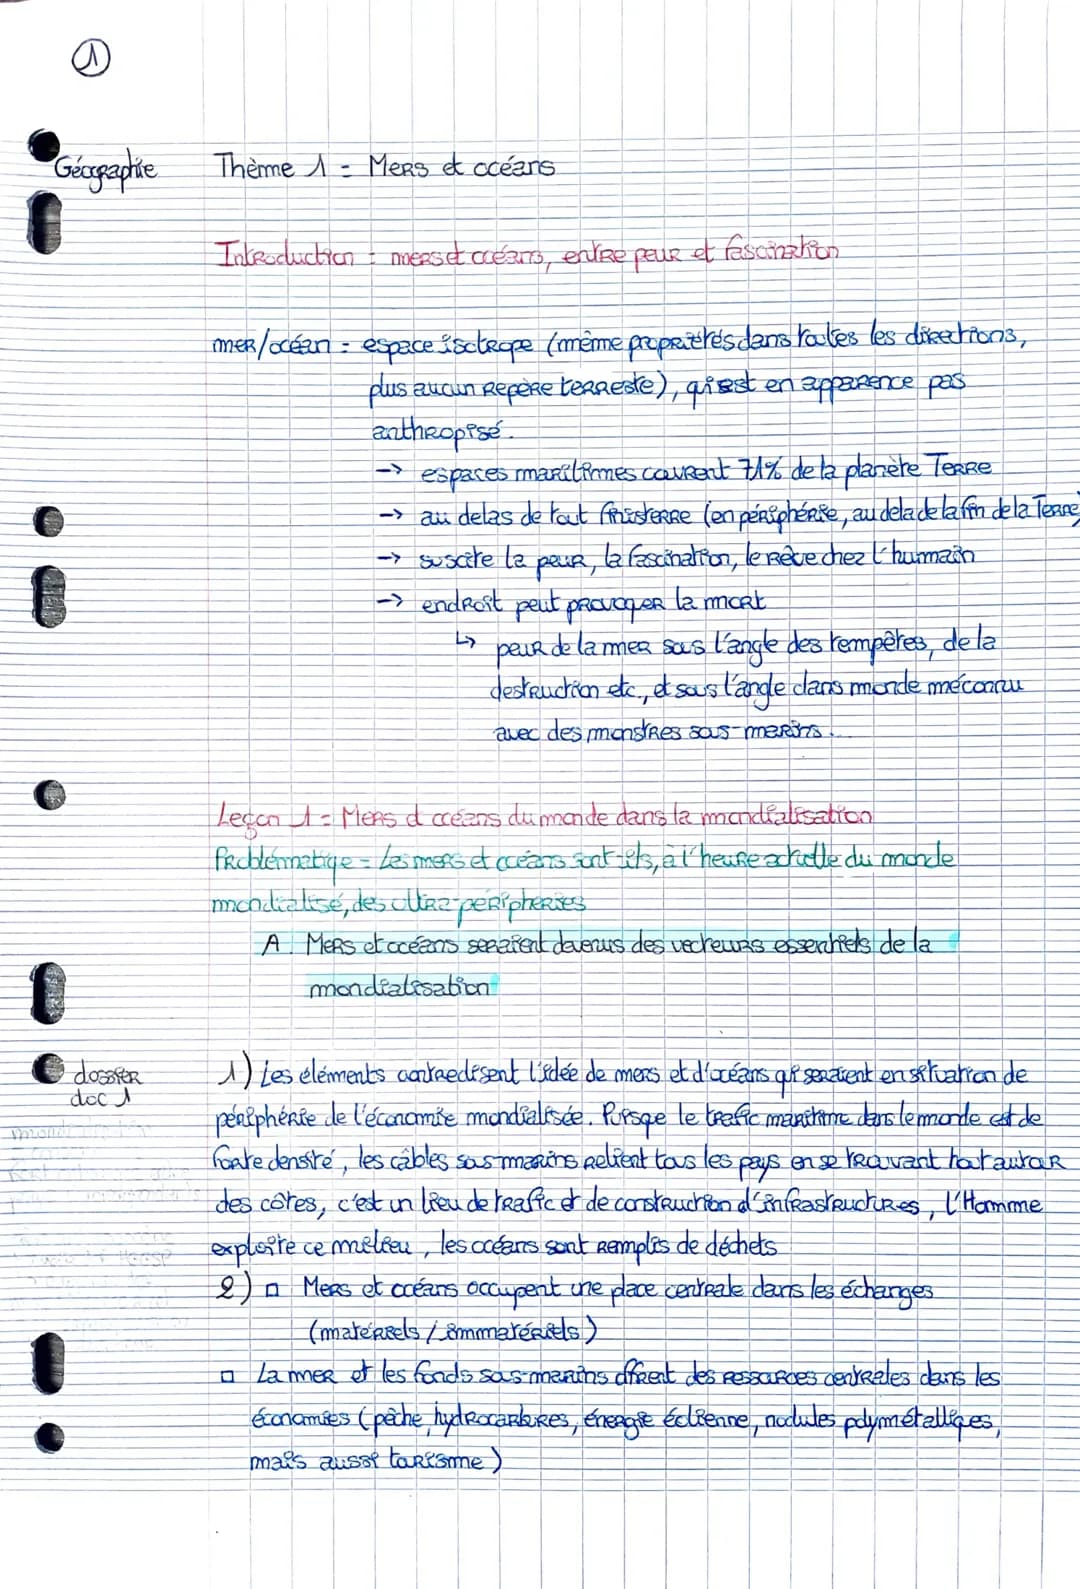 1
Géographie Thème 1 = Mers et océans
Introduction = mers et océans, entre peur et fascination
mer/océan = espace isotrope (même propriétés dans toutes les directions,
plus aucun repère terreste), qui est en apparence pas
anthropisé.
→ espaces maritimes couvrent 71% de la planète Terre
→ au delas de tout finisterre (en périphérie, au dela de la fin de la Terre)
→ suscite la peur, la fascination, le rêve chez l'humain
→ endroit peut provoquer la mort
↳ peur de la mer sous l'angle des tempêtes, de la
destruction etc., et sous l'angle dans monde méconnu
avec des monstres sous-marins.
Leçon 1 = Mers et océans du monde dans la mondialisation
Problématique = Les mers et océans sont-ils, à l'heure actuelle du monde
mondialisé, des ultra-périphéries
A. Mers et océans seraient devenus des vecteurs essentiels de la
mondialisation
dossier
doc 1
1) Les éléments contredisent l'idée de mers et d'océans qui seraient en situation de
périphérie de l'économie mondialisée. Puisque le trafic maritime dans le monde est de
forte densité, les câbles sous-marins relient tous les pays en se trouvant tout autour
des côtes, c'est un lieu de trafic et de construction d'infrastructures, l'Homme
exploite ce milieu, les océans sont remplis de déchets
2) □ Mers et océans occupent une place centrale dans les échanges
(matérriels / immatériels)
□ La mer et les fonds sous-marins offrent des ressources centrales dans les
économies (pêche, hydrocarbures, énergie éolienne, nodules polymétalliques,
mais aussi tourisme)